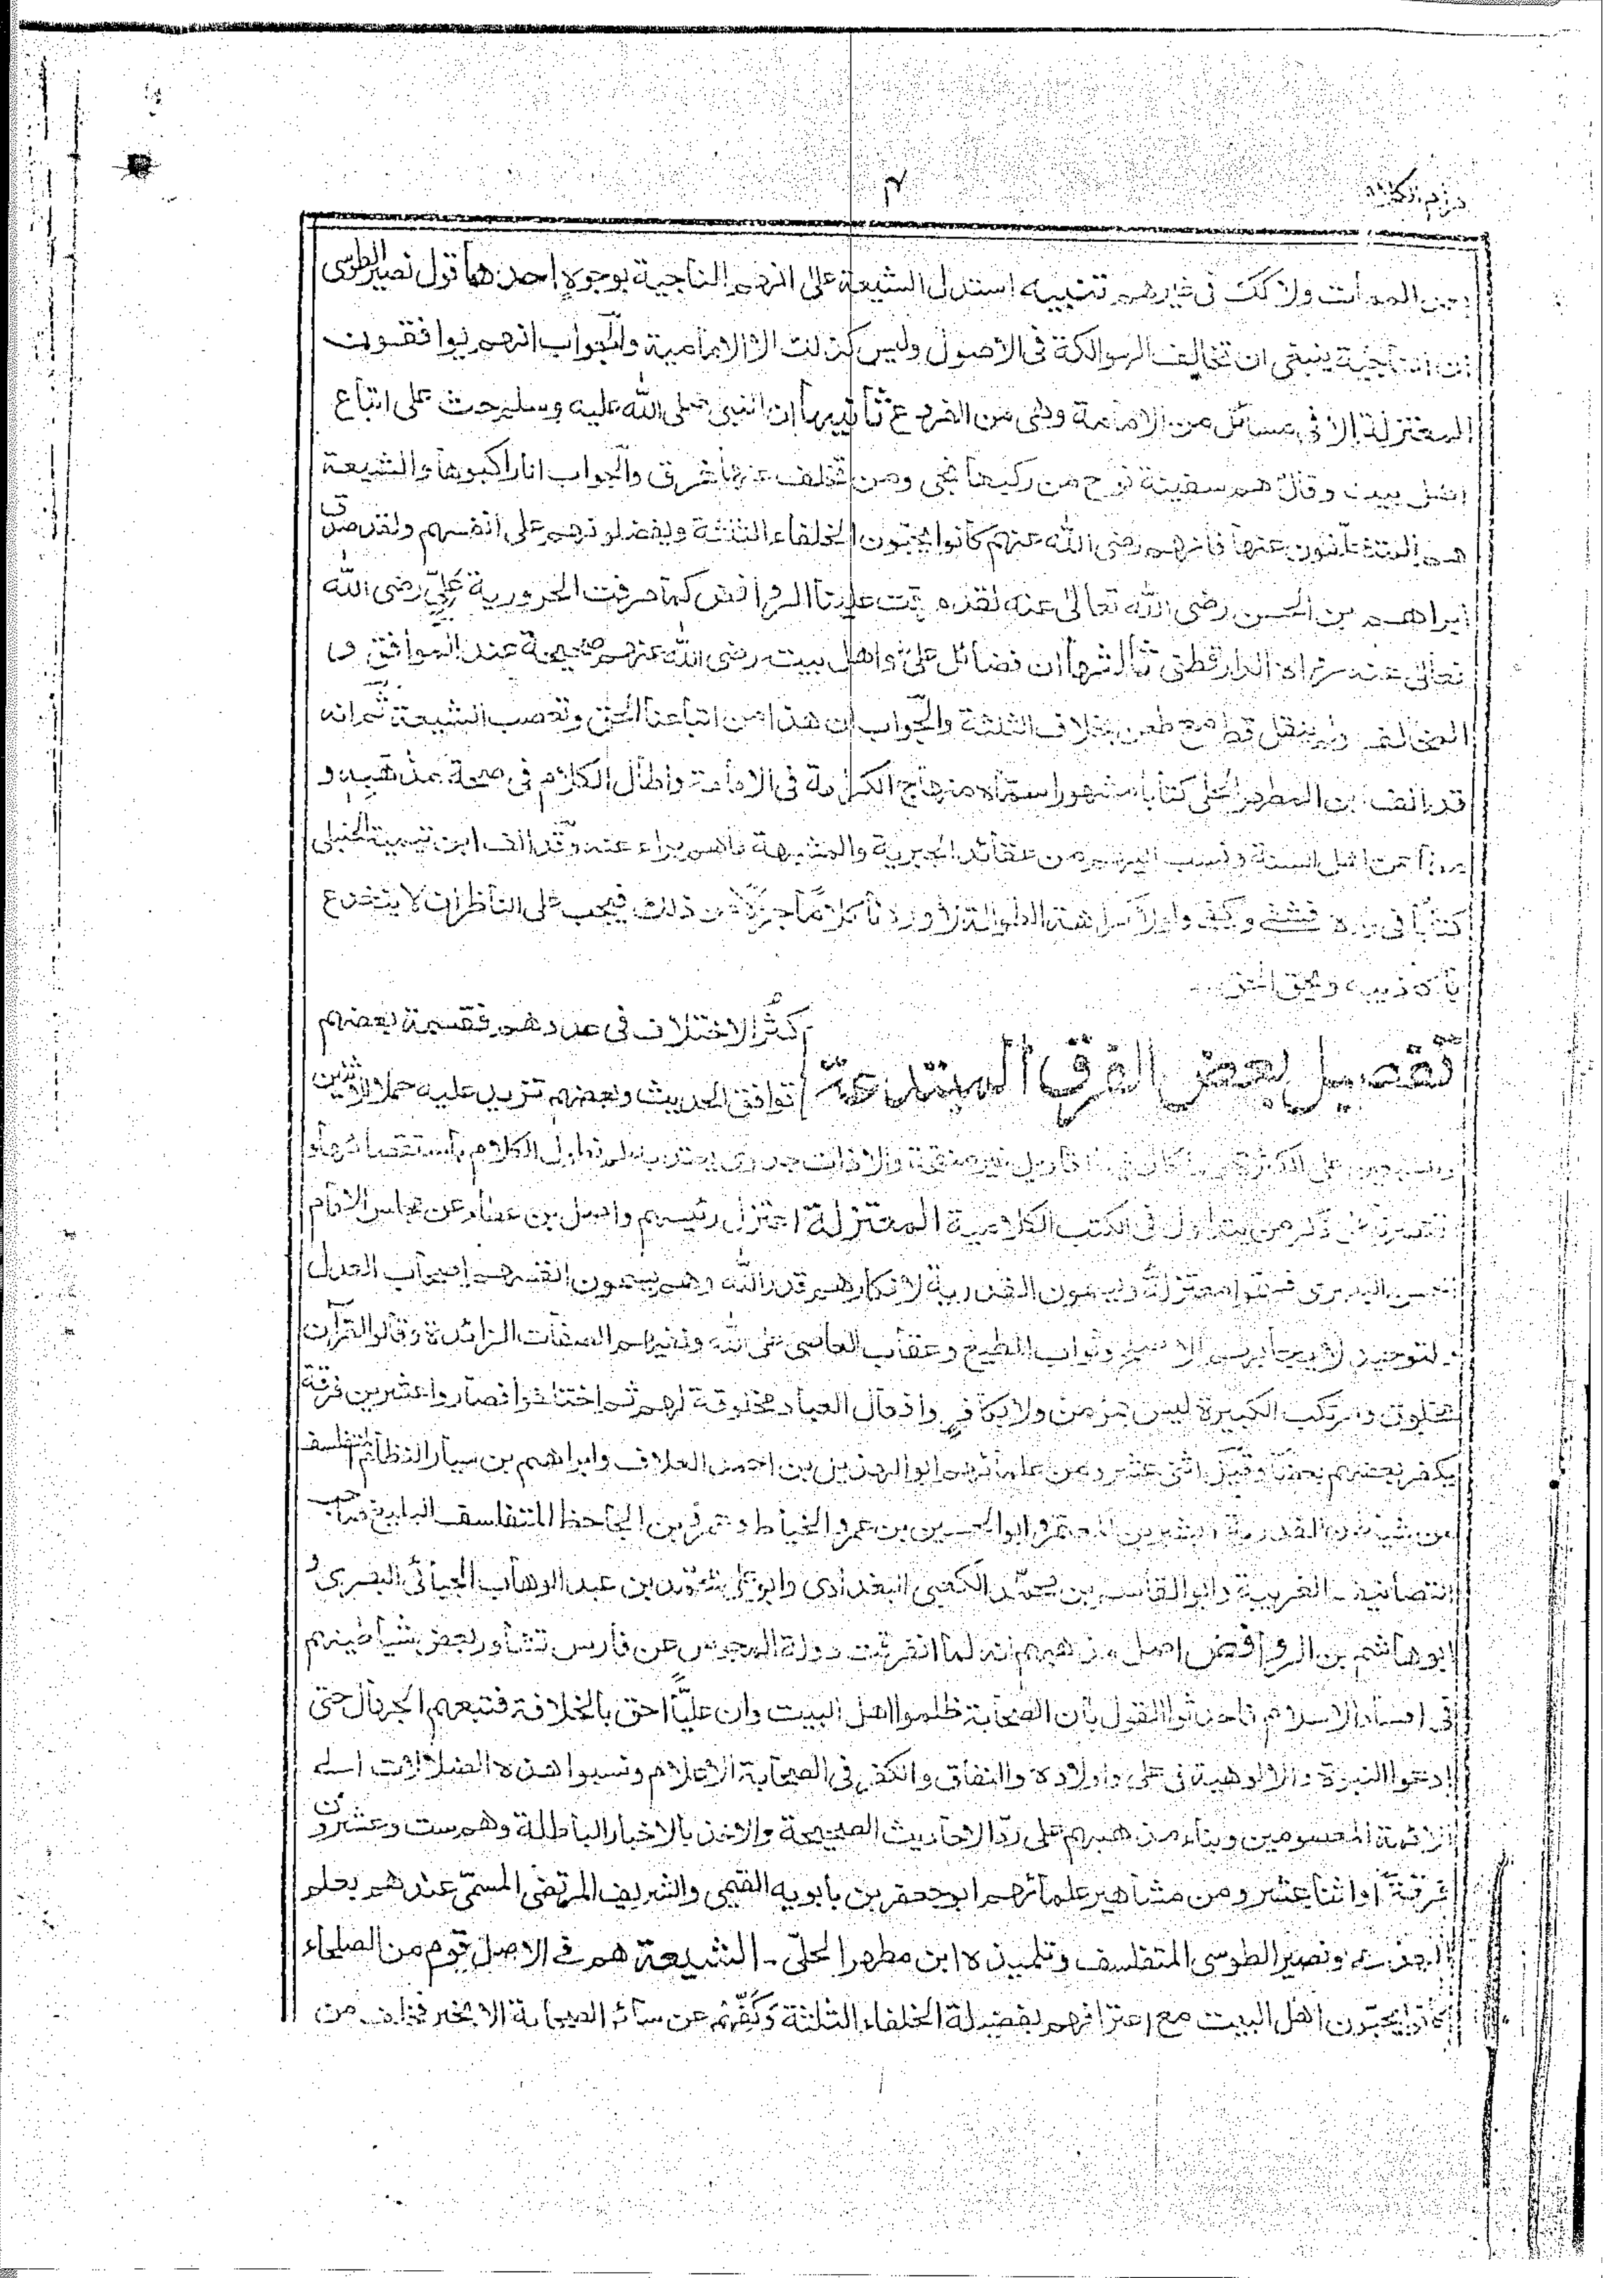 مرام الكلام
٣
ولا كك فى غيرهم تنبيه استدل الشيعة على انهم الناجية بوجوه احدها قول نصير الطوسى
ان الناجية ينبغى ان تخالف الهوالك فى الاصول وليس كذلك الا الامامية والجواب انهم يوافقون
المعتزلة الا فى مسائل من الامامة وهى من الفروع ثانيها ان النبى صلى الله عليه وسلم حث على اتباع
اهل بيت وقال هم سفينة نوح من ركبها نجى ومن تخلف عنها غرق والجواب انا راكبوها والشيعة
هم المتخلفون عنها فانهم رضى الله عنهم كانوا يحبون الخلفاء الثلثة ويفضلونهم على انفسهم ولقد صدق
ابراهيم بن الحسن رضى الله تعالى عنه لقد مرقت علينا الروافض كما مرقت الحرورية على علىّ رضى الله
تعالى عنه رواه الدارقطنى ثالثها ان فضائل على واهل بيت رضى الله عنهم صحيحة عند الموافق و
المخالف ولم ينقل قط مع طعن بخلاف الثلثة والجواب ان هذا من اتباعنا الحق وتعصب الشيعة ثم انه
قد الف ابن المطهر الحلى كتابا مشهورا سماه منهاج الكرامة فى الامامة واطال الكلام فى صحة مذهبه و
اهل السنة ونسب اليهم من عقائد الجبرية والمشبهة ماهم براء عنه وقد الف ابن تيمية الحنبلى
كتابا فى رده فشفى وكفى ولولا كراهة الطوالة لاوردنا كلاما جزلا من ذلك فيجب على الناظر ان لا ينخدع
باكاذيبه ويحق الحق
تفصيل بعض الفرق المبتدعة
كثر الاختلاف فى عددهم فقسمة بعضهم
توافق الحديث وبعضهم تزيد عليه حملا لاثنين
وسبعين على الكثرة لم نطول الكلام باستقصائها و
فى الكتب الكلامية المعتزلة اعتزل رئيسهم واصل بن عطاء عن مجلس الامام
الحسن البصرى فسموا معتزلة ويسمون القدرية لانكارهم قدر الله وهم يسمون انفسهم اصحاب العدل
والتوحيد لايجابهم الاصلح وثواب المطيع وعقاب العاصى على الله ونفيهم الصفات الزائدة وقالوا القرآن
مخلوق ومرتكب الكبيرة ليس بمؤمن ولا بكافر وافعال العباد مخلوقة لهم ثم اختلفوا فصاروا عشرين فرقة
يكفر بعضهم بعضا وقيل اثنى عشر ومن علمائهم ابو الهذيل بن احمد العلاف وابراهيم بن سيار النظام المتفلسف
من شياطين القدرية وبشر بن المعتمر وابو الحسين بن عمرو الخياط وعمرو بن الجاحظ المتفلسف البليغ صاحب
التصانيف الغريبة وابو القاسم بن محمد الكعبى البغدادى وابو على محمد بن عبد الوهاب الجبائى البصرى و
ابو هاشم بن الروافض اصل مذهبهم انه لما انقرضت دولة المجوس عن فارس تشاور بعض شياطينهم
فى افساد الاسلام فاحدثوا القول بان الصحابة ظلموا اهل البيت وان عليّا احق بالخلافة فتبعهم الجهال حتى
ادعوا النبوة والالوهية فى على واولاده والنفاق والكفر فى الصحابة الاعلام ونسبوا هذه الضلالات الى
الائمة المعصومين وبناء مذهبهم على ردّ الاحاديث الصحيحة والاخذ بالاخبار الباطلة وهم ست وعشرون
فرقة او اثنا عشر ومن مشاهير علمائهم ابو جعفر بن بابويه القمى والشريف المرتضى المسمّى عندهم بعلم
الهدى ونصير الطوسى المتفلسف وتلميذه ابن مطهر الحلّى ـ الشيعة هم فى الاصل قوم من الصلحاء
كانوا يحبّون اهل البيت مع اعترافهم بفضيلة الخلفاء الثلثة وكفّهم عن سائر الصحابة الا بخير فخلف من